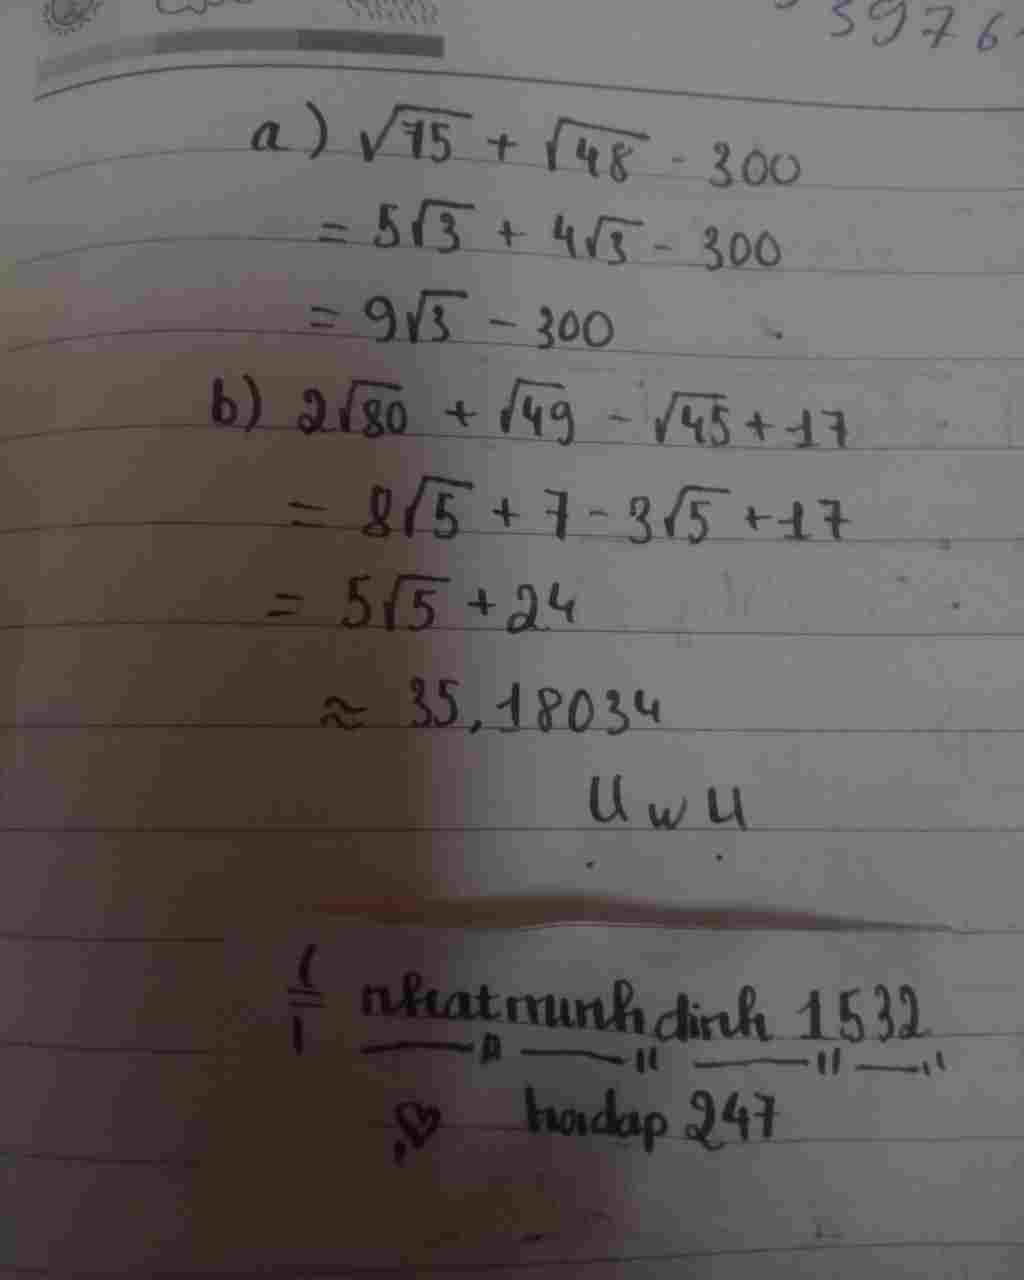 3976
a) √75 + √48 - 300
= 5√3 + 4√3 - 300
= 9√3 - 300
b) 2√80 + √49 - √45 + 17
= 8√5 + 7 - 3√5 + 17
= 5√5 + 24
≈ 35,18034
UwU
nhatminhdinh 1532
hoidap 247